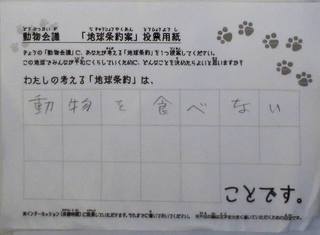 動物会議 「地球条約案」投票用紙
きょうの「動物会議」に、あなたが考える「地球条約」を1つ提案してください。
この地球でみんながなかよくくらしていくために、どんなことを決めたらよいと思いますか?
わたしの考える「地球条約」は、
動物を食べない
ことです。